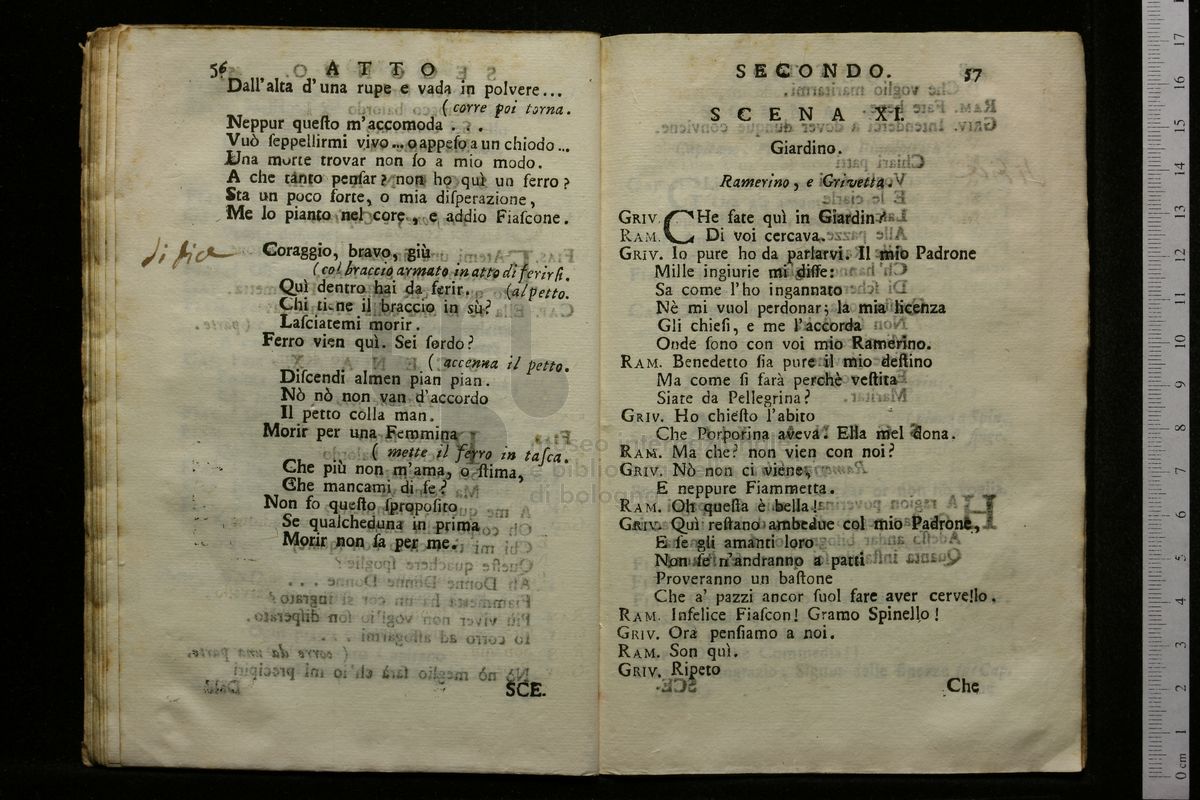 56 ATTO
Dall'alta d'una rupe e vada in polvere...
(corre poi torna.
Neppur queſto m'accomoda . . .
Vuò ſeppellirmi vivo... o appeſo a un chiodo...
Una morte trovar non ſo a mio modo.
A che tanto penſar? non ho quì un ferro?
Sta un poco forte, o mia diſperazione,
Me lo pianto nel core, e addio Fiaſcone.
si dice
Coraggio, bravo, giù
(col braccio armato in atto di ferirſi.
Quì dentro hai da ferir. (al petto.
Chi tiene il braccio in sù?
Laſciatemi morir.
Ferro vien quì. Sei ſordo?
( accenna il petto.
Diſcendi almen pian pian.
Nò nò non van d'accordo
Il petto colla man.
Morir per una Femmina
( mette il ferro in taſca.
Che più non m'ama, o ſtima,
Che mancami di fe?
Non ſo queſto ſpropoſito
Se qualcheduna in prima
Morir non ſa per me.
SCE.
SECONDO. 57
SCENA XI.
Giardino.
Ramerino, e Grivetta.
GRIV. CHe fate quì in Giardin?
RAM. Di voi cercava.
GRIV. Io pure ho da parlarvi. Il mio Padrone
Mille ingiurie mi diſſe:
Sa come l'ho ingannato
Nè mi vuol perdonar; la mia licenza
Gli chieſi, e me l'accorda
Onde ſono con voi mio Ramerino.
RAM. Benedetto ſia pure il mio deſtino
Ma come ſi farà perchè veſtita
Siate da Pellegrina?
GRIV. Ho chieſto l'abito
Che Porporina aveva. Ella mel dona.
RAM. Ma che? non vien con noi?
GRIV. Nò non ci viene,
E neppure Fiammetta.
RAM. Oh queſta è bella!
GRIV. Quì reſtano ambedue col mio Padrone,
E ſe gli amanti loro
Non ſe n'andranno a patti
Proveranno un baſtone
Che a' pazzi ancor ſuol fare aver cervello.
RAM. Infelice Fiaſcon! Gramo Spinello!
GRIV. Ora penſiamo a noi.
RAM. Son quì.
GRIV. Ripeto
Che